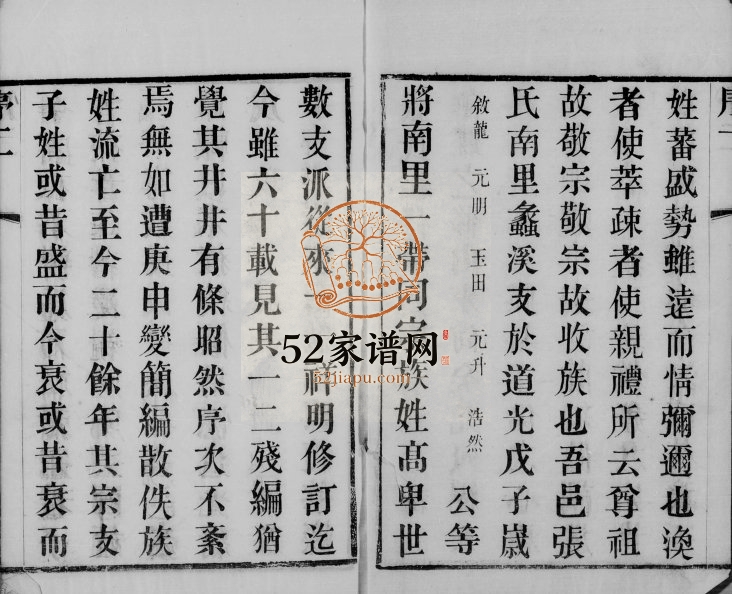 姓蕃盛勢雖遠而情彌邇也渙
者使萃疎者使親禮所云尊祖
故敬宗敬宗故收族也吾邑張
氏南里蠡溪支於道光戊子歲
敘龍 元明 玉田 元升 浩然 公等
將南里一帶同宗族姓高卑世
數支派從來一 神明修訂迄
今雖六十載見其一二殘編猶
覺其井井有條昭然序次不紊
焉無如遭庚申變簡編散佚族
姓流亡至今二十餘年其宗支
子姓或昔盛而今衰或昔衰而
序二
52家谱网
52jiapu.com